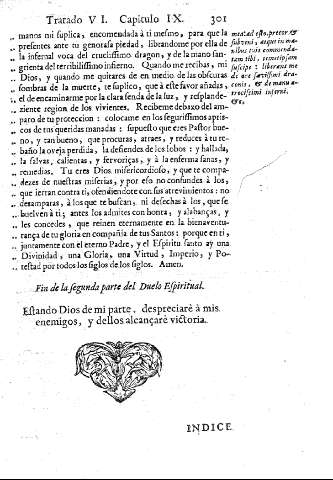 Tratado VI. Capitulo IX. 301
manos mi suplica, encomendada à ti mesmo, para que la
presentes ante tu gloriosa piedad, librandome por ella de
la infernal voca del crucissimo dragon, y de la mano san-
grienta del terribilissimo infierno. Quando me recibas, mi
Dios, y quando me quitares de en medio de las obscuras
sombras de la muerte, te suplico, que à este favor añadas,
el de encaminarme por la clara senda de la luz, y resplande-
ziente region de los vivientes. Recibeme debaxo del am-
paro de tu proteccion: colocame en los segurissimos aptis-
cos de tus queridas manadas: supuesto que eres Pastor bue-
no, y tan bueno, que procuras, atraes, y reduces à tu re-
baño la oveja perdida, la defiendes de los lobos: y hallada,
la salvas, calientas, y fervoriças, y à la enferma sanas, y
remedias. Tu eres Dios misericordioso, y que te compa-
dezes de nuestras miserias, y por eso no confundes à los,
que ierran contra ti, ofendiendote con sus atrevimientos: no
desamparas, à los que te buscan, ni desechas à los, que se
buelven à ti; antes los admites con honra, y alabanças, y
les concedes, que reinen eternamente en la bienaventu-
rança de tu gloria en compañia de tus Santos: porque en ti,
juntamente con el eterno Padre, y el Espiritu santo ay una
Divinidad, una Gloria, una Virtud, Imperio, y Po-
testad por todos los siglos de los siglos. Amen.
meæ: ad esto, precor &
subveni, atque in ma-
nibus tuis commenda-
tam tibi, memetipsam
suscipe: liberans me
de ore sævissimi dra-
conis, & de manu a-
trocissimi inferni.
&c.
Fin de la segunda parte del Duelo Espiritual.
Estando Dios de mi parte, despreciarè à mis
enemigos, y dellos alcançarè victoria.
INDICE